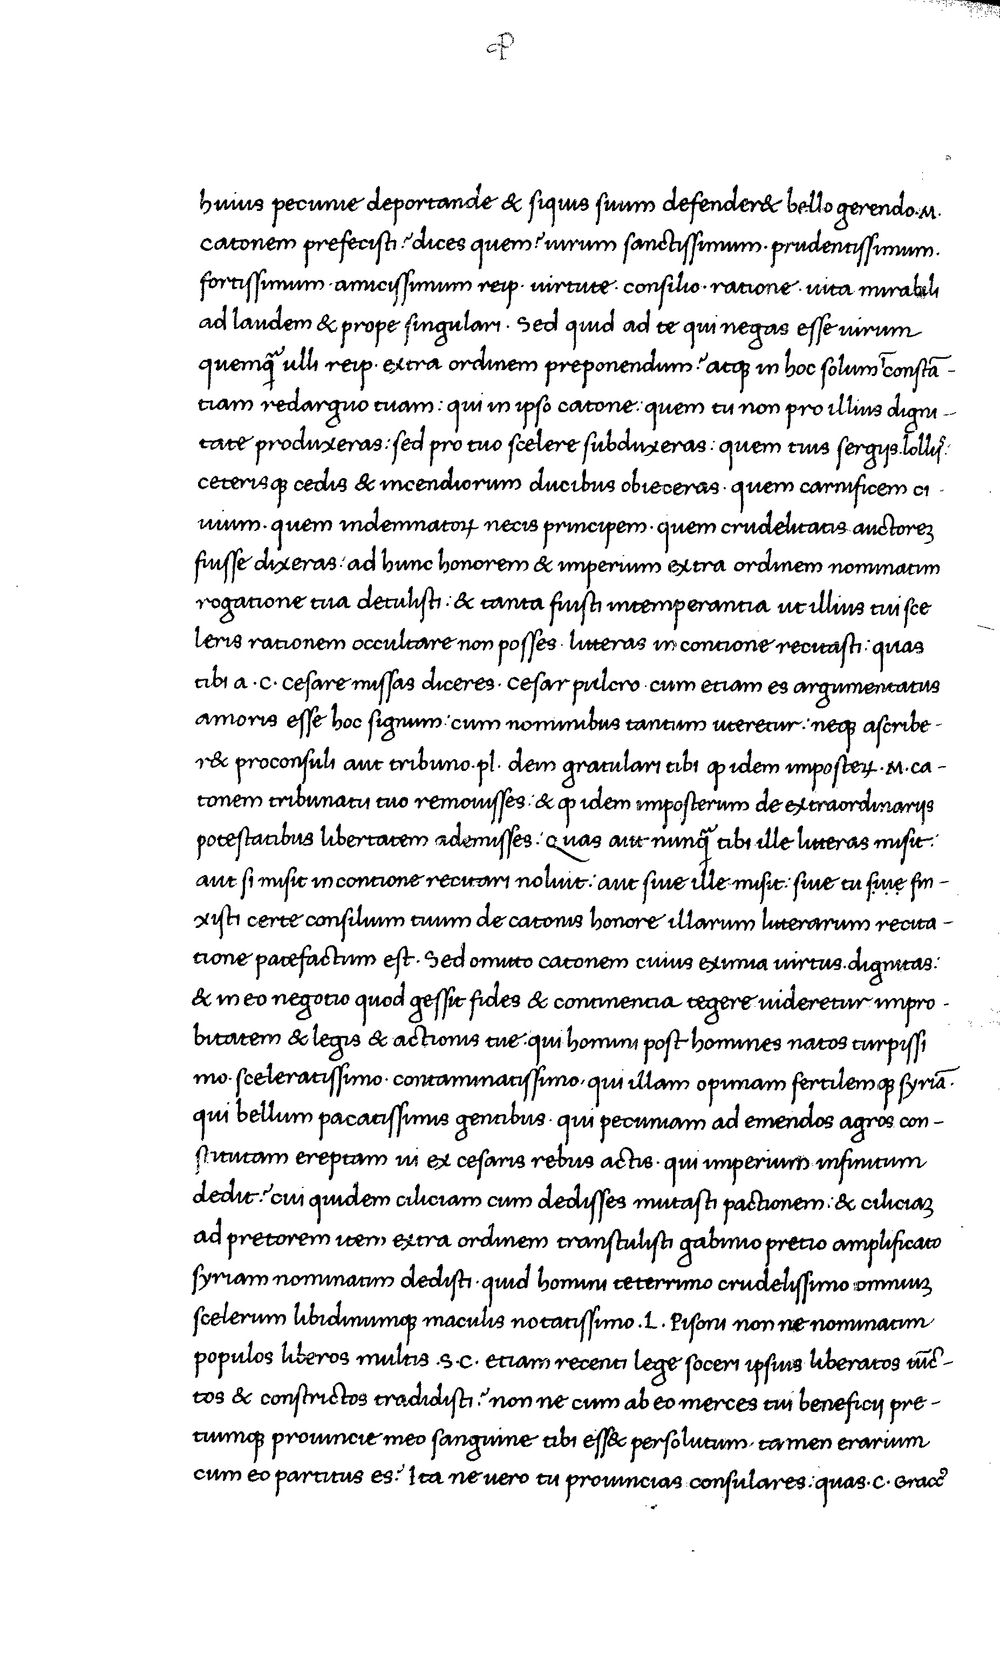 huius pecunie deportande & siquis suum defender& bello gerendo.M.
catonem prefecisti? dices quem? uirum sanctissimum. prudentissimum.
fortissimum. amicissimum reip. uirtute. consilio. ratione. uita mirabili
ad laudem & prope singulari. Sed quid ad te qui negas esse uirum
quemq̃ ulli reip. extra ordinem preponendum? atq; in hoc solum cõnstã-
tiam redarguo tuam: qui in ipso catone: quem tu non pro illius digni-
tate produxeras: sed pro tuo scelere subduxeras: quem tuis sergijs. lollijs:
ceterisq; cedis & incendiorum ducibus obieceras. quem carnificem ci-
uium. quem indemnatoꝝ necis principem. quem crudelitatis auctoreꝫ
fuisse dixeras: ad hunc honorem & imperium extra ordinem nominatim
rogatione tua detulisti: & tanta fuisti intemperantia ut illius tui sce
leris rationem occultare non posses. litteras in contione recitasti: quas
tibi a.C. cesare missas diceres. cesar pulcro. cum etiam es argumentatus
amoris esse hoc signum: cum nominibus tantum uteretur: neq; ascribe-
r& proconsuli aut tribuno.pl. dem gratulari tibi ꝙ idem imposteꝝ.M.ca-
tonem tribunatu tuo remouisses: & ꝙ idem imposterum de extraordinarijs
potestatibus libertatem ademisses: Quas aut nunq̃ tibi ille litteras misit:
aut si misit in contione recitari noluit: aut siue ille misit: siue tu siue fin-
xisti certe consilium tuum de catonis honore illarum litterarum recita-
tione patefactum est. Sed omitto catonem cuius eximia uirtus. dignitas:
& in eo negotio quod gessit fides & continentia tegere uideretur impro-
bitatem & legis & actionis tue: qui homini post homines natos turpissi
mo. sceleratissimo. contaminatissimo, qui illam opimam fertilemq; syriã.
qui bellum pacatissimis gentibus. qui pecuniam ad emendos agros con-
stitutam ereptam ui ex cesaris rebus actis. qui imperium infinitum
dedit? cui quidem ciliciam cum dedisses mutasti pactionem: & ciliciaꝫ
ad pretorem item extra ordinem transtulisti gabinio pretio amplificato
syriam nominatim dedisti. quid homini teterrimo crudelissimo omniuꝫ
scelerum libidinumq; maculis notatissimo.L. Pisoni non ne nominatim
populos liberos multis.S.C. etiam recenti lege soceri ipsius liberatos uĩc-
tos & constrictos tradidisti? non ne cum ab eo merces tui beneficij pre-
tiumq; prouincie meo sanguine tibi ess& persolutum, tamen erarium
cum eo partitus es? Ita ne uero tu prouincias consulares: quas.C. Gracc9